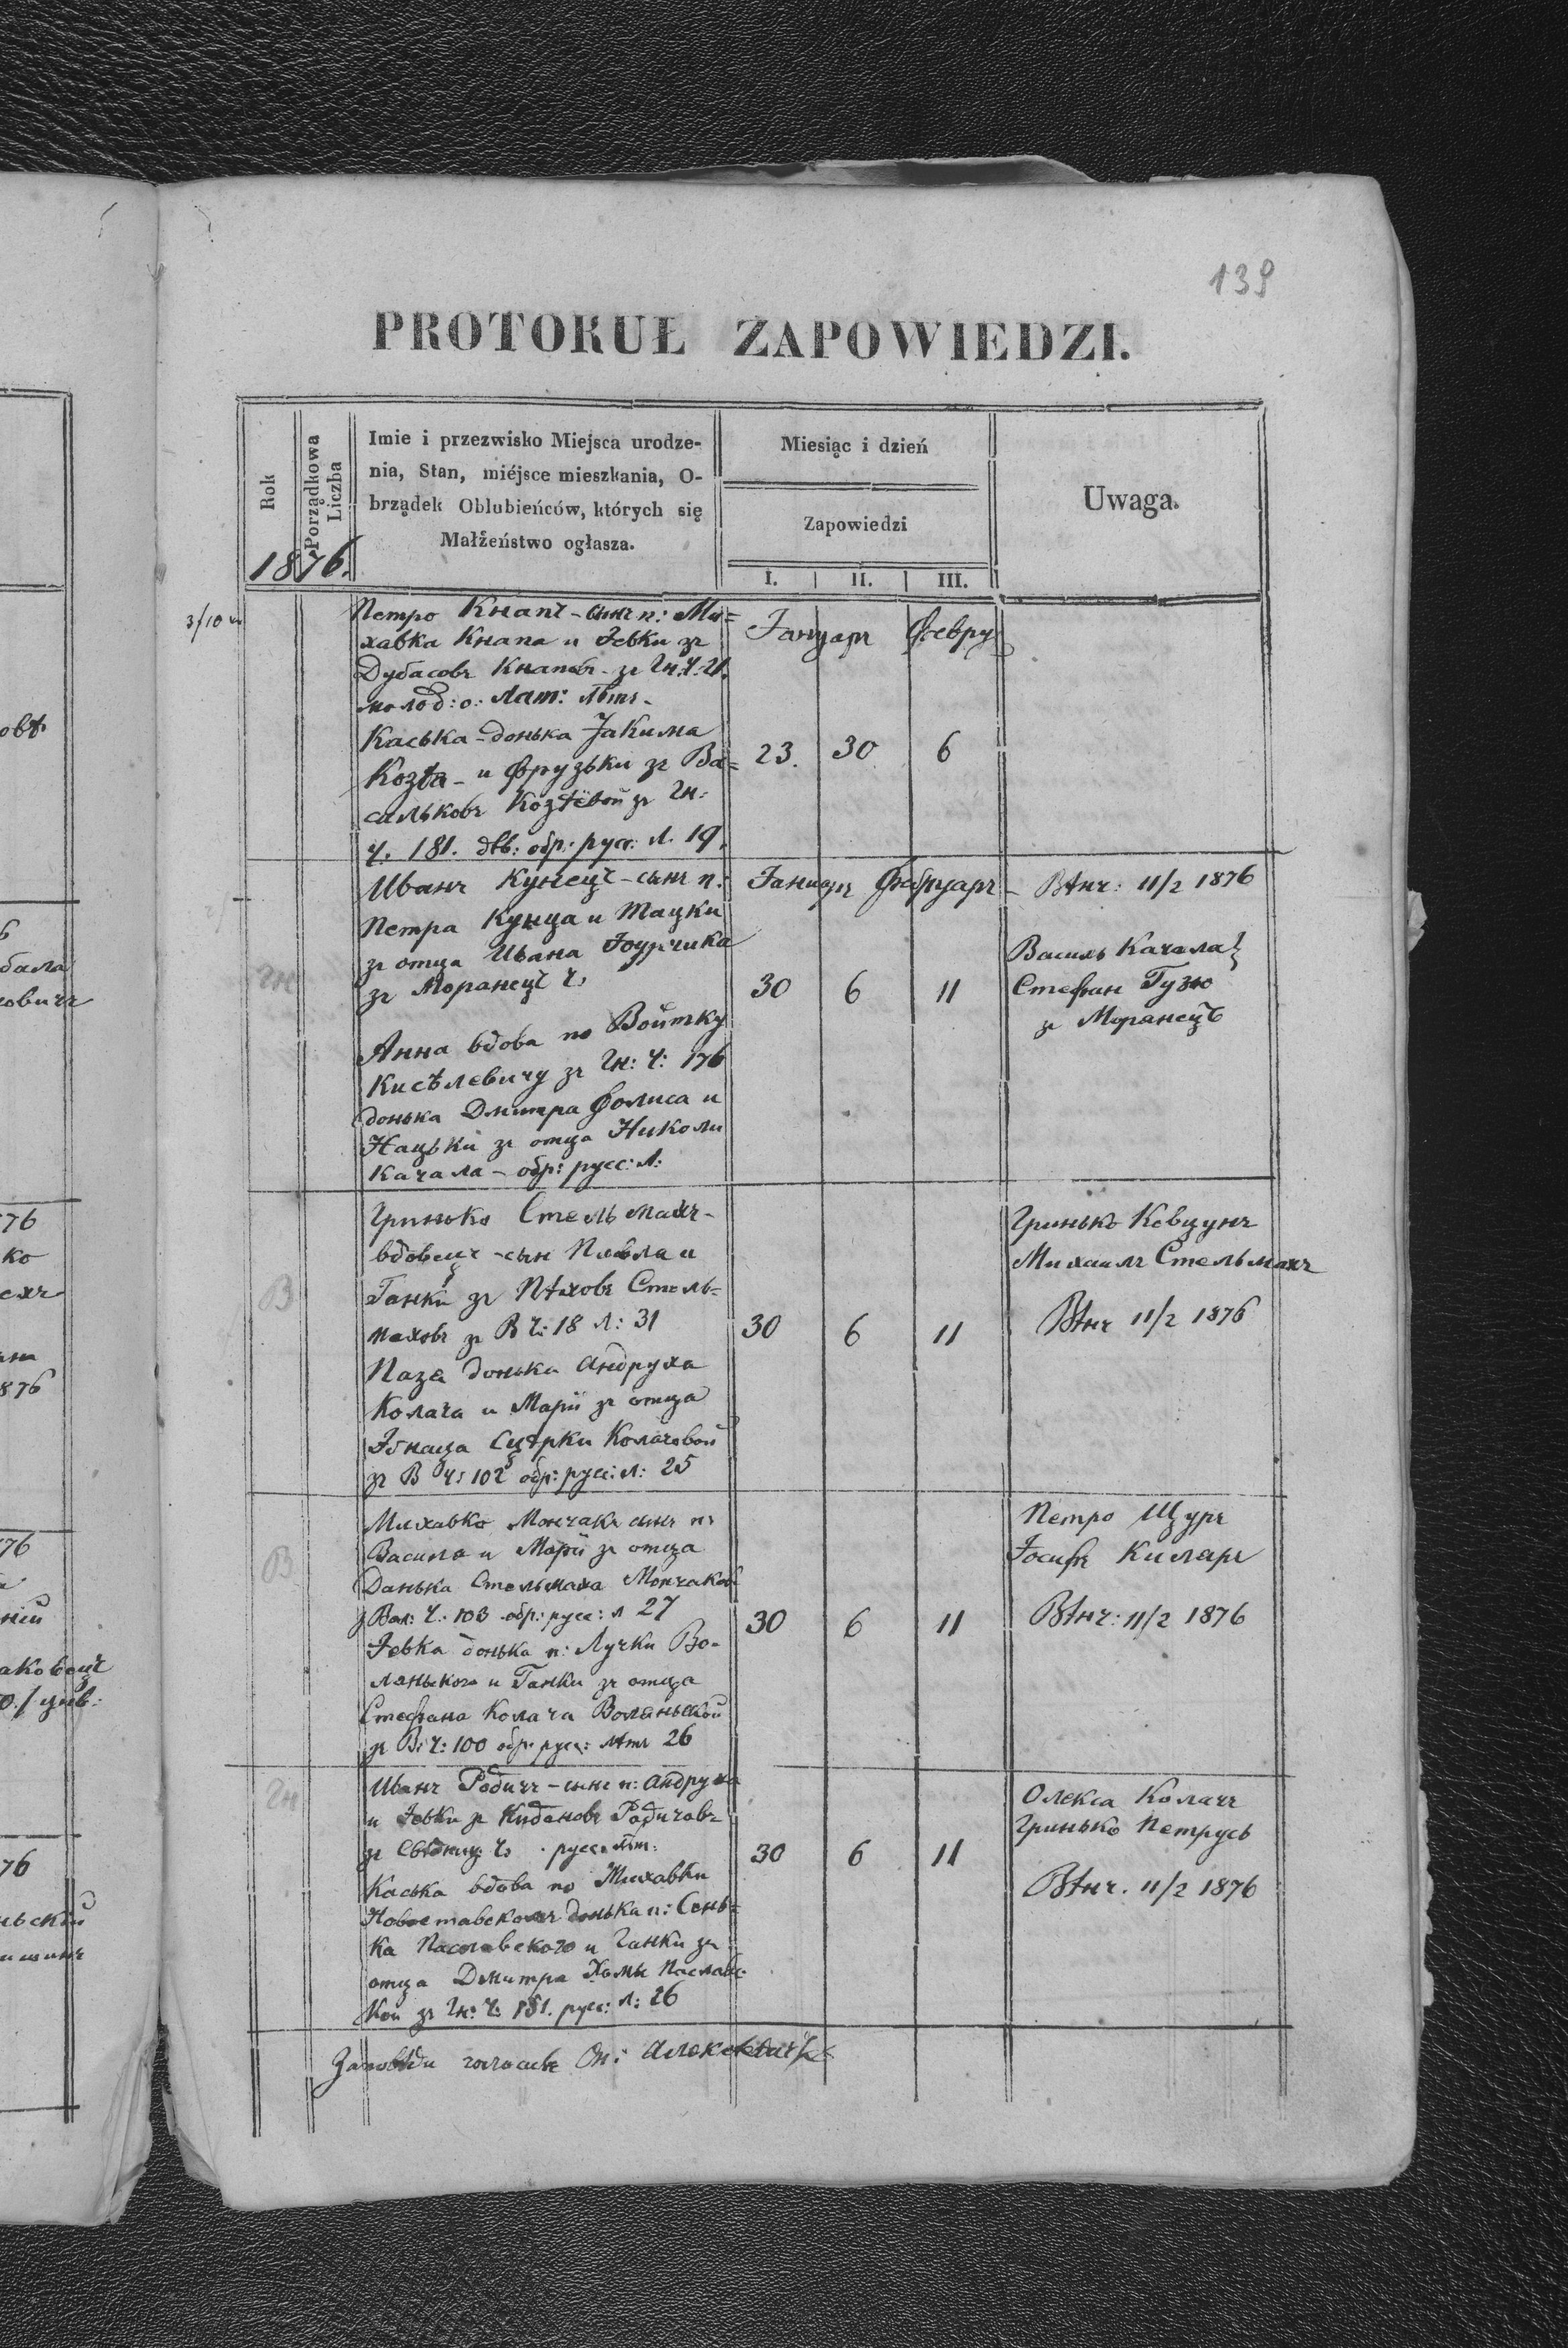 139
PROTOKUŁ ZAPOWIEDZI.
Rok
Porządkowa Liczba
Imie i przezwisko Miejsca urodze-
nia, Stan, miéjsce mieszkania, O-
brządek Oblubieńców, których się
Małżeństwo ogłasza.
Miesiąc i dzień
Zapowiedzi
I. II. III.
Uwaga.
1876.
Петро Кнапъ - сынъ п: Ми=
хавка Кнапа и Jевки зъ
Дубасовъ Кнапôвъ - зъ Гн: Ч: 21.
молод: о: Лат: лѣтъ -
Каська - донька Jакима
Козѣя - и Фрузьки зъ Ва=
сильковъ Козѣёвои зъ Гн:
ч. 181. дѣв: обр: рус: л. 19.
Jануаръ Февру
23. 30 6
Иванъ Кунецъ - сынъ п:
Петра Кунца и Тацки
зъ отца Ивана
зъ Моранецъ ч.
Анна вдова по Войтку
Кисѣлевичу зъ Гн: Ч: 176
донька Дмитра Фолиса и
Нацьки зъ отца Николи
Качала - обр: русс: л:
Jануаръ Фебруаръ
30 6 11
Вѣнч: 11/2 1876
Василь Качала
Стефан Гузю
зъ Моранецъ
Гн
Гринько Стельмахъ -
вдовецъ - сын Павла и
Ганки зъ Пѣховъ Стель=
маховъ зъ В Ч: 18 л: 31
Паза донька Андруха
Колача и Маріи зъ отца
Jгнаца Колачовои
зъ В Ч: 102 обр: русс: л: 25
30 6 11
Гринько Ковцунъ
Михаилъ Стельмахъ
Вѣнч 11/2 1876
В
Михавко Мончакъ сынъ п:
Василя и Маріи зъ отца
Данька Стельмаха Мончаков
з Вол: Ч: 103 обр: русс: л 27
Jевка донька п: Лучки Во-
ляньского и Ганки зъ отца
Стефана Колача Воляньской
зъ В: Ч: 100 обр: русс: лѣтъ 26
30 6 11
Петро Щуръ
Jосифъ Киларъ
Вѣнч: 11/2 1876
В
Иванъ Радичъ - сынъ п: Андруха
и Jевки зъ Кидановъ Радичовъ
зъ Свѣдниц: Ч. русс: лѣт:
Каська вдова по Михавки
донька п: Сень=
ка Паславского и Ганки зъ
отца Дмитра Хомы Паславс
кои зъ Гн: Ч: 181. русс: л: 26
30 6 11
Олекса Колачъ
Гринько Петрусь
Вѣнч. 11/2 1876
Гн
Заповѣди голосивъ